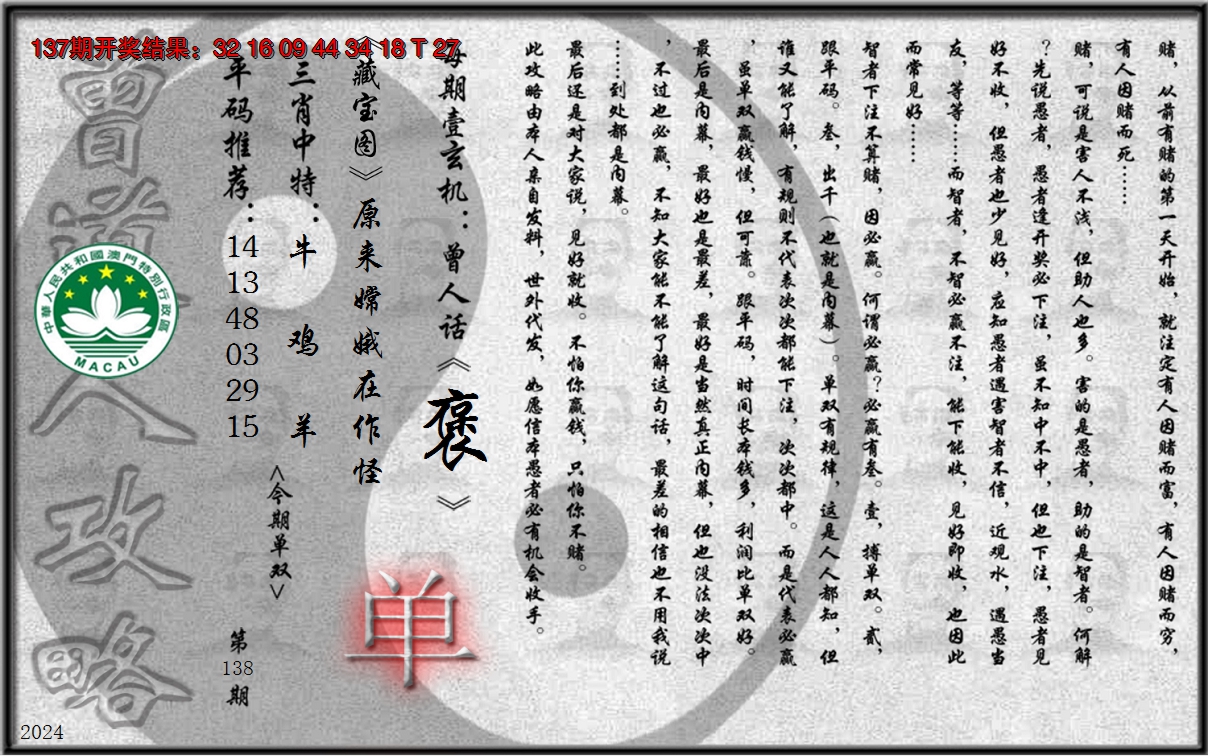 137期开奖结果：32 16 09 44 34 18 T 27
赌，从前有赌的第一天开始，就注定有人因赌而富，有人因赌而穷，
有人因赌而死……
赌，可说是害人不浅，但助人也多。害的是愚者，助的是智者。何解
？先说愚者，愚者逢开奖必下注，虽不知中不中，但也下注，愚者见
好不收，但愚者也少见好，应知愚者遇害智者不信，近观水，遇愚当
友，等等……而智者，不智必赢不注，能下能收，见好即收，也因此
而常见好……
智者下注不算赌，因必赢。何谓必赢？必赢有叁。壹，搏单双。贰，
跟平码。叁，出千（也就是内幕）。单双有规律，这是人人都知，但
谁又能了解，有规则不代表次次都能下注，次次都中。而是代表必赢
，虽单双赢钱慢，但可靠。跟平码，时间长本钱多，利润比单双好。
最后是内幕，最好也是最差，最好是当然真正内幕，但也没法次次中
，不过也必赢，不知大家能不能了解这句话，最差的相信也不用我说
……到处都是内幕。
最后还是对大家说，见好就收。不怕你赢钱，只怕你不赌。
此攻略由本人亲自发料，世外代发，如愿信本愚者必有机会收手。
每期壹玄机：曾人话《褒》
《藏宝图》原来嫦娥在作怪
三肖中特：牛 鸡 羊
平码推荐：
14
13
48
03
29
15
<今期单双>
单
第
138
期
曾道人攻略
中華人民共和國澳門特別行政區
MACAU
2024